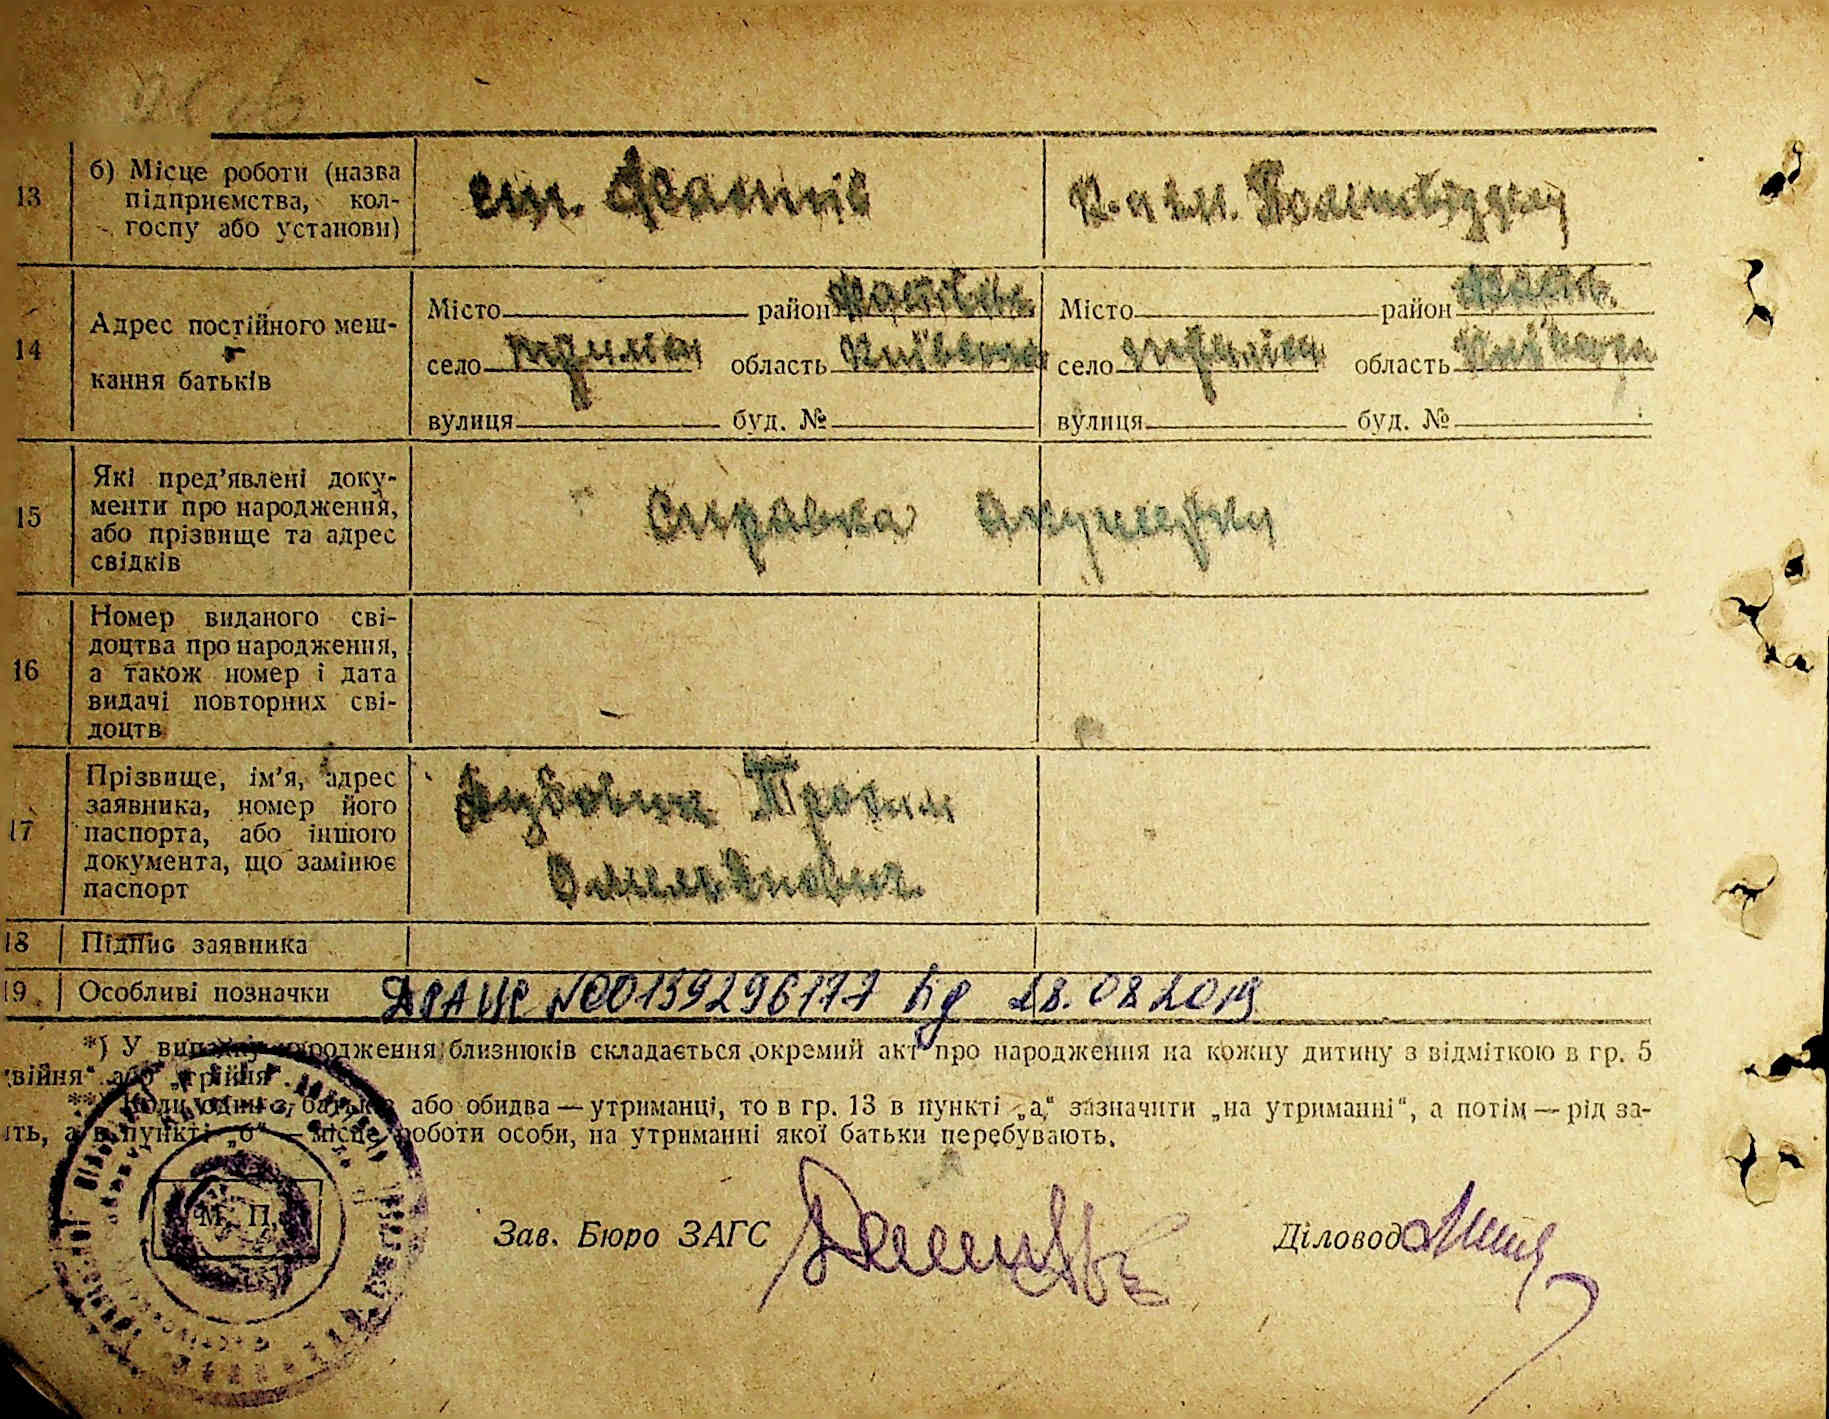 13
б) Місце роботи (назва
підприємства, кол-
госпу або установи)
ст. Фастів
К-п ім.
14
Адрес постійного меш-
кання батьків
Місто район Фастівськ
село область Київська
вулиця буд. №
Місто район Фастів.
село область Київська
вулиця буд. №
15
Які пред’явлені доку-
менти про народження,
або прізвище та адрес
свідків
Справка акушерки
16
Номер виданого сві-
доцтва про народження,
а також номер і дата
видачі повторних сві-
доцтв
17
Прізвище, ім’я, адрес
заявника, номер його
паспорта, або іншого
документа, що замінює
паспорт
Трохим
Омельянович
18 Підпис заявника
19 Особливі позначки
ДРАЦС №00139296177 від 28.08.2019
*) У випадку народження близнюків складається окремий акт про народження на кожну дитину з відміткою в гр. 5
„двійня“ або „трійня“.
**) Коли один з батьків або обидва — утриманці, то в гр. 13 в пункті „а“ зазначити „на утриманні“, а потім — рід за-
ять, а в пункті „б“ — місце роботи особи, на утриманні якої батьки перебувають.
М. П.
Зав. Бюро ЗАГС
Діловод